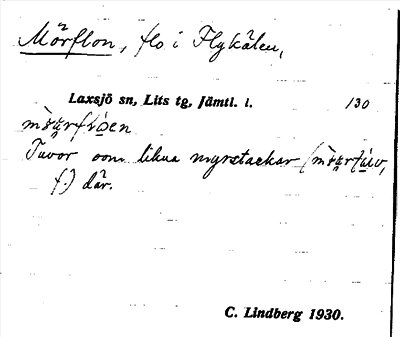 Mörflon, flo i Flykälen,
Laxsjö sn, Lits tg, Jämtl. l. 130
Tuvor som likna myrstackar
f.) där.
C. Lindberg 1930.